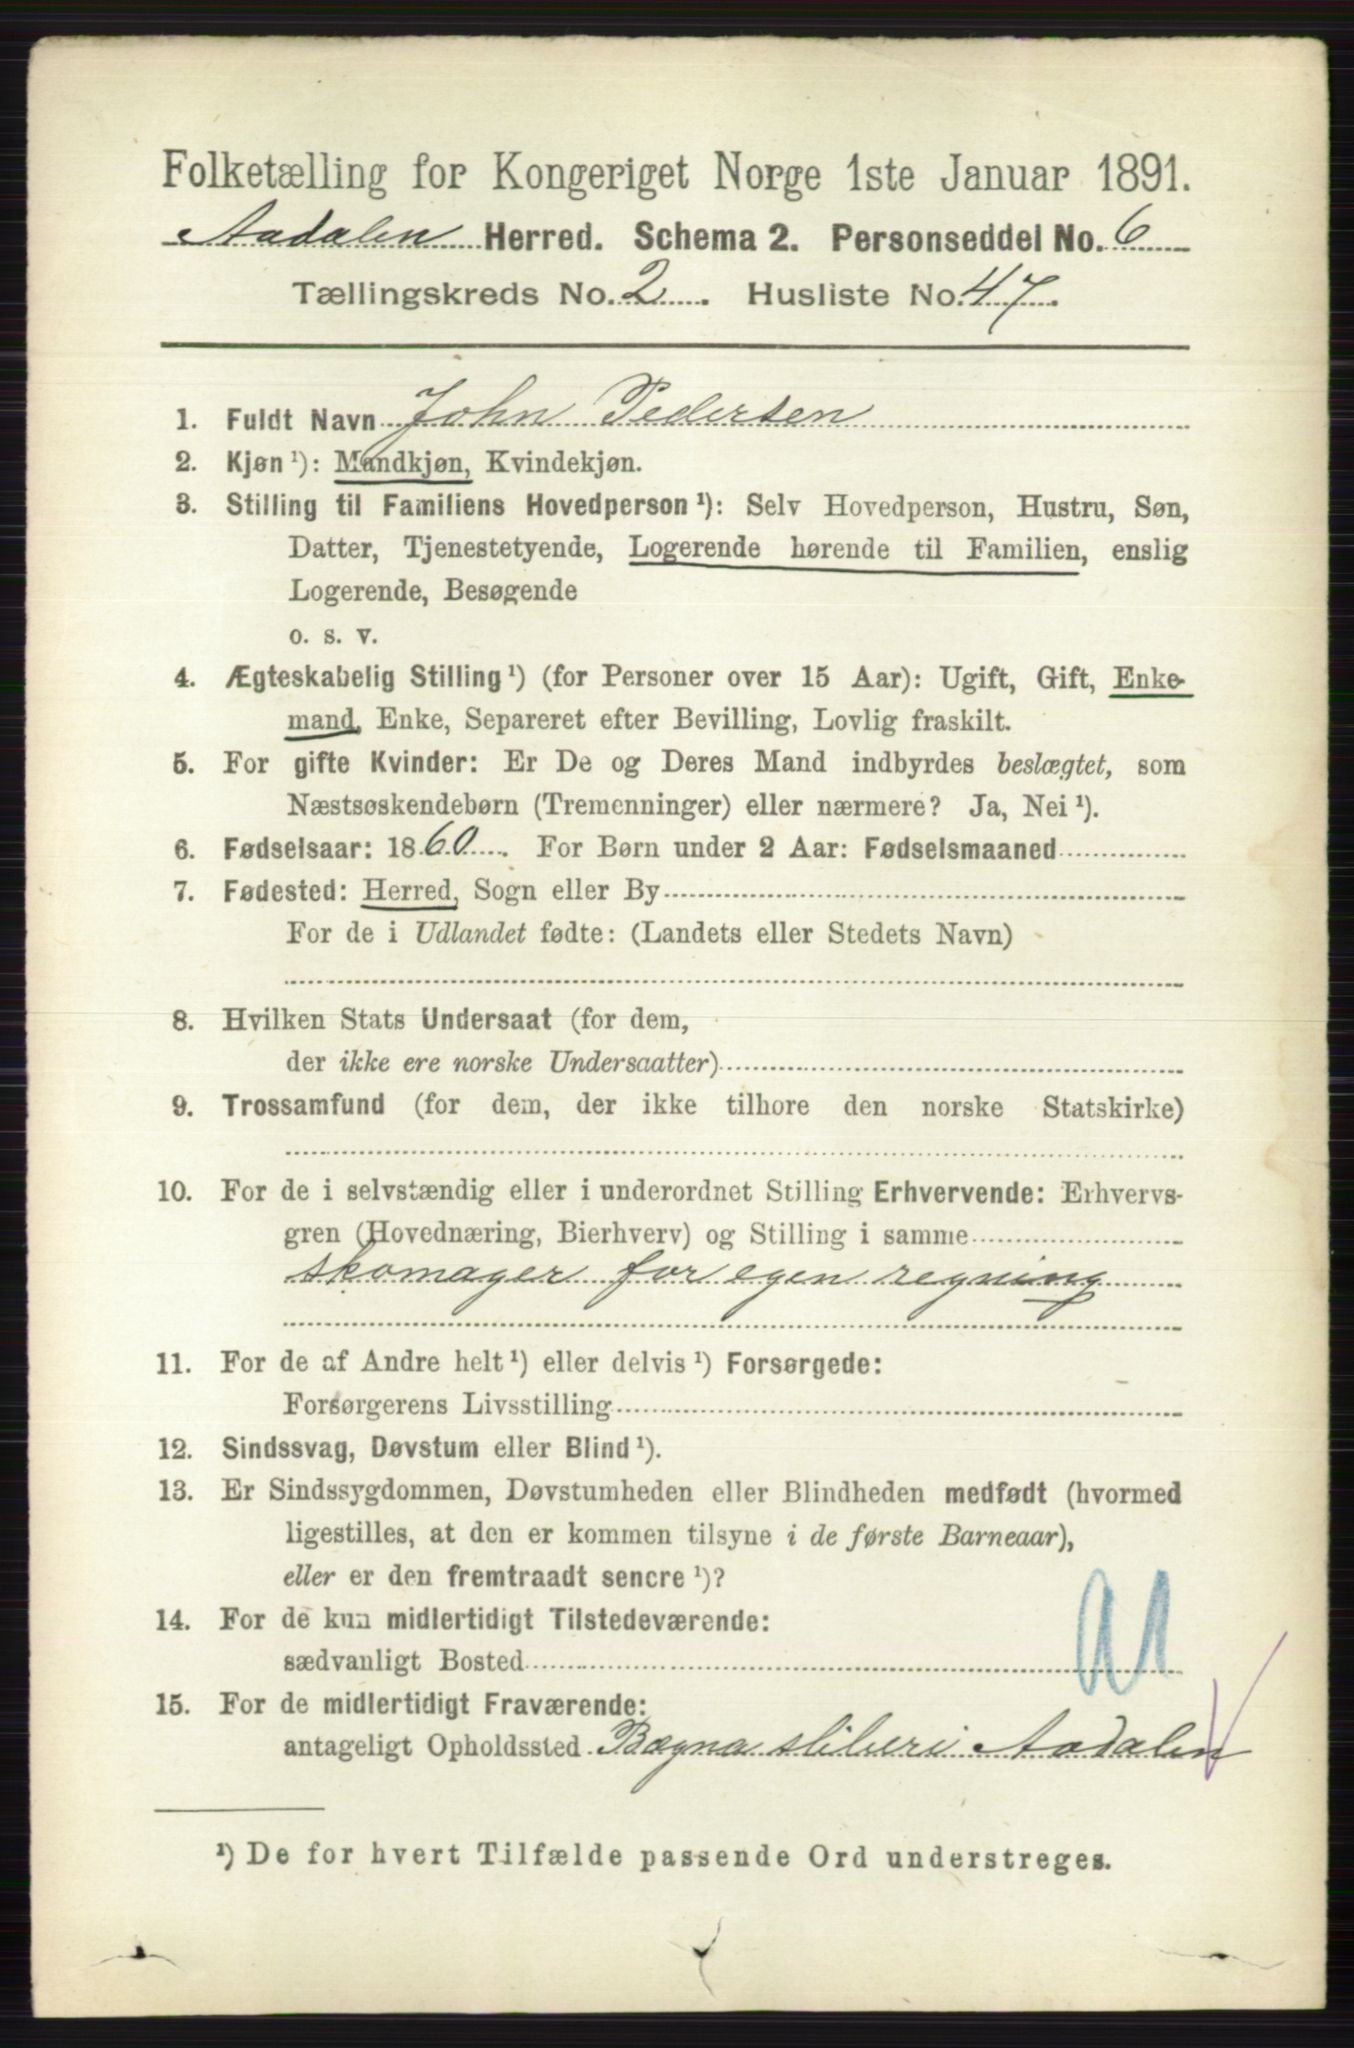 Folketælling for Kongeriget Norge 1ste Januar 1891.
Aadalen Herred. Schema 2. Personseddel No. 6
Tællingskreds No. 2. Husliste No. 47.
1. Fuldt Navn John Pedersen
2. Kjøn ¹): Mandkjøn, Kvindekjøn.
3. Stilling til Familiens Hovedperson ¹): Selv Hovedperson, Hustru, Søn,
Datter, Tjenestetyende, Logerende hørende til Familien, enslig
Logerende, Besøgende
o. s. v.
4. Ægteskabelig Stilling ¹) (for Personer over 15 Aar): Ugift, Gift, Enke-
mand, Enke, Separeret efter Bevilling, Lovlig fraskilt.
5. For gifte Kvinder: Er De og Deres Mand indbyrdes beslægtet, som
Næstsøskendebørn (Tremenninger) eller nærmere? Ja, Nei ¹).
6. Fødselsaar: 1860. For Børn under 2 Aar: Fødselsmaaned
7. Fødested: Herred, Sogn eller By
For de i Udlandet fødte: (Landets eller Stedets Navn)
8. Hvilken Stats Undersaat (for dem,
der ikke ere norske Undersaatter)
9. Trossamfund (for dem, der ikke tilhore den norske Statskirke)
10. For de i selvstændig eller i underordnet Stilling Erhvervende: Erhvervs-
gren (Hovednæring, Bierhverv) og Stilling i samme
skomager for egen regning
11. For de af Andre helt ¹) eller delvis ¹) Forsørgede:
Forsørgerens Livsstilling
12. Sindssvag, Døvstum eller Blind ¹).
13. Er Sindssygdommen, Døvstumheden eller Blindheden medfødt (hvormed
ligestilles, at den er kommen tilsyne i de første Barneaar),
eller er den fremtraadt senere ¹)?
14. For de kun midlertidigt Tilstedeværende:
sædvanligt Bosted
15. For de midlertidigt Fraværende:
antageligt Opholdssted Bægna sliberi Aadalen
¹) De for hvert Tilfælde passende Ord understreges.